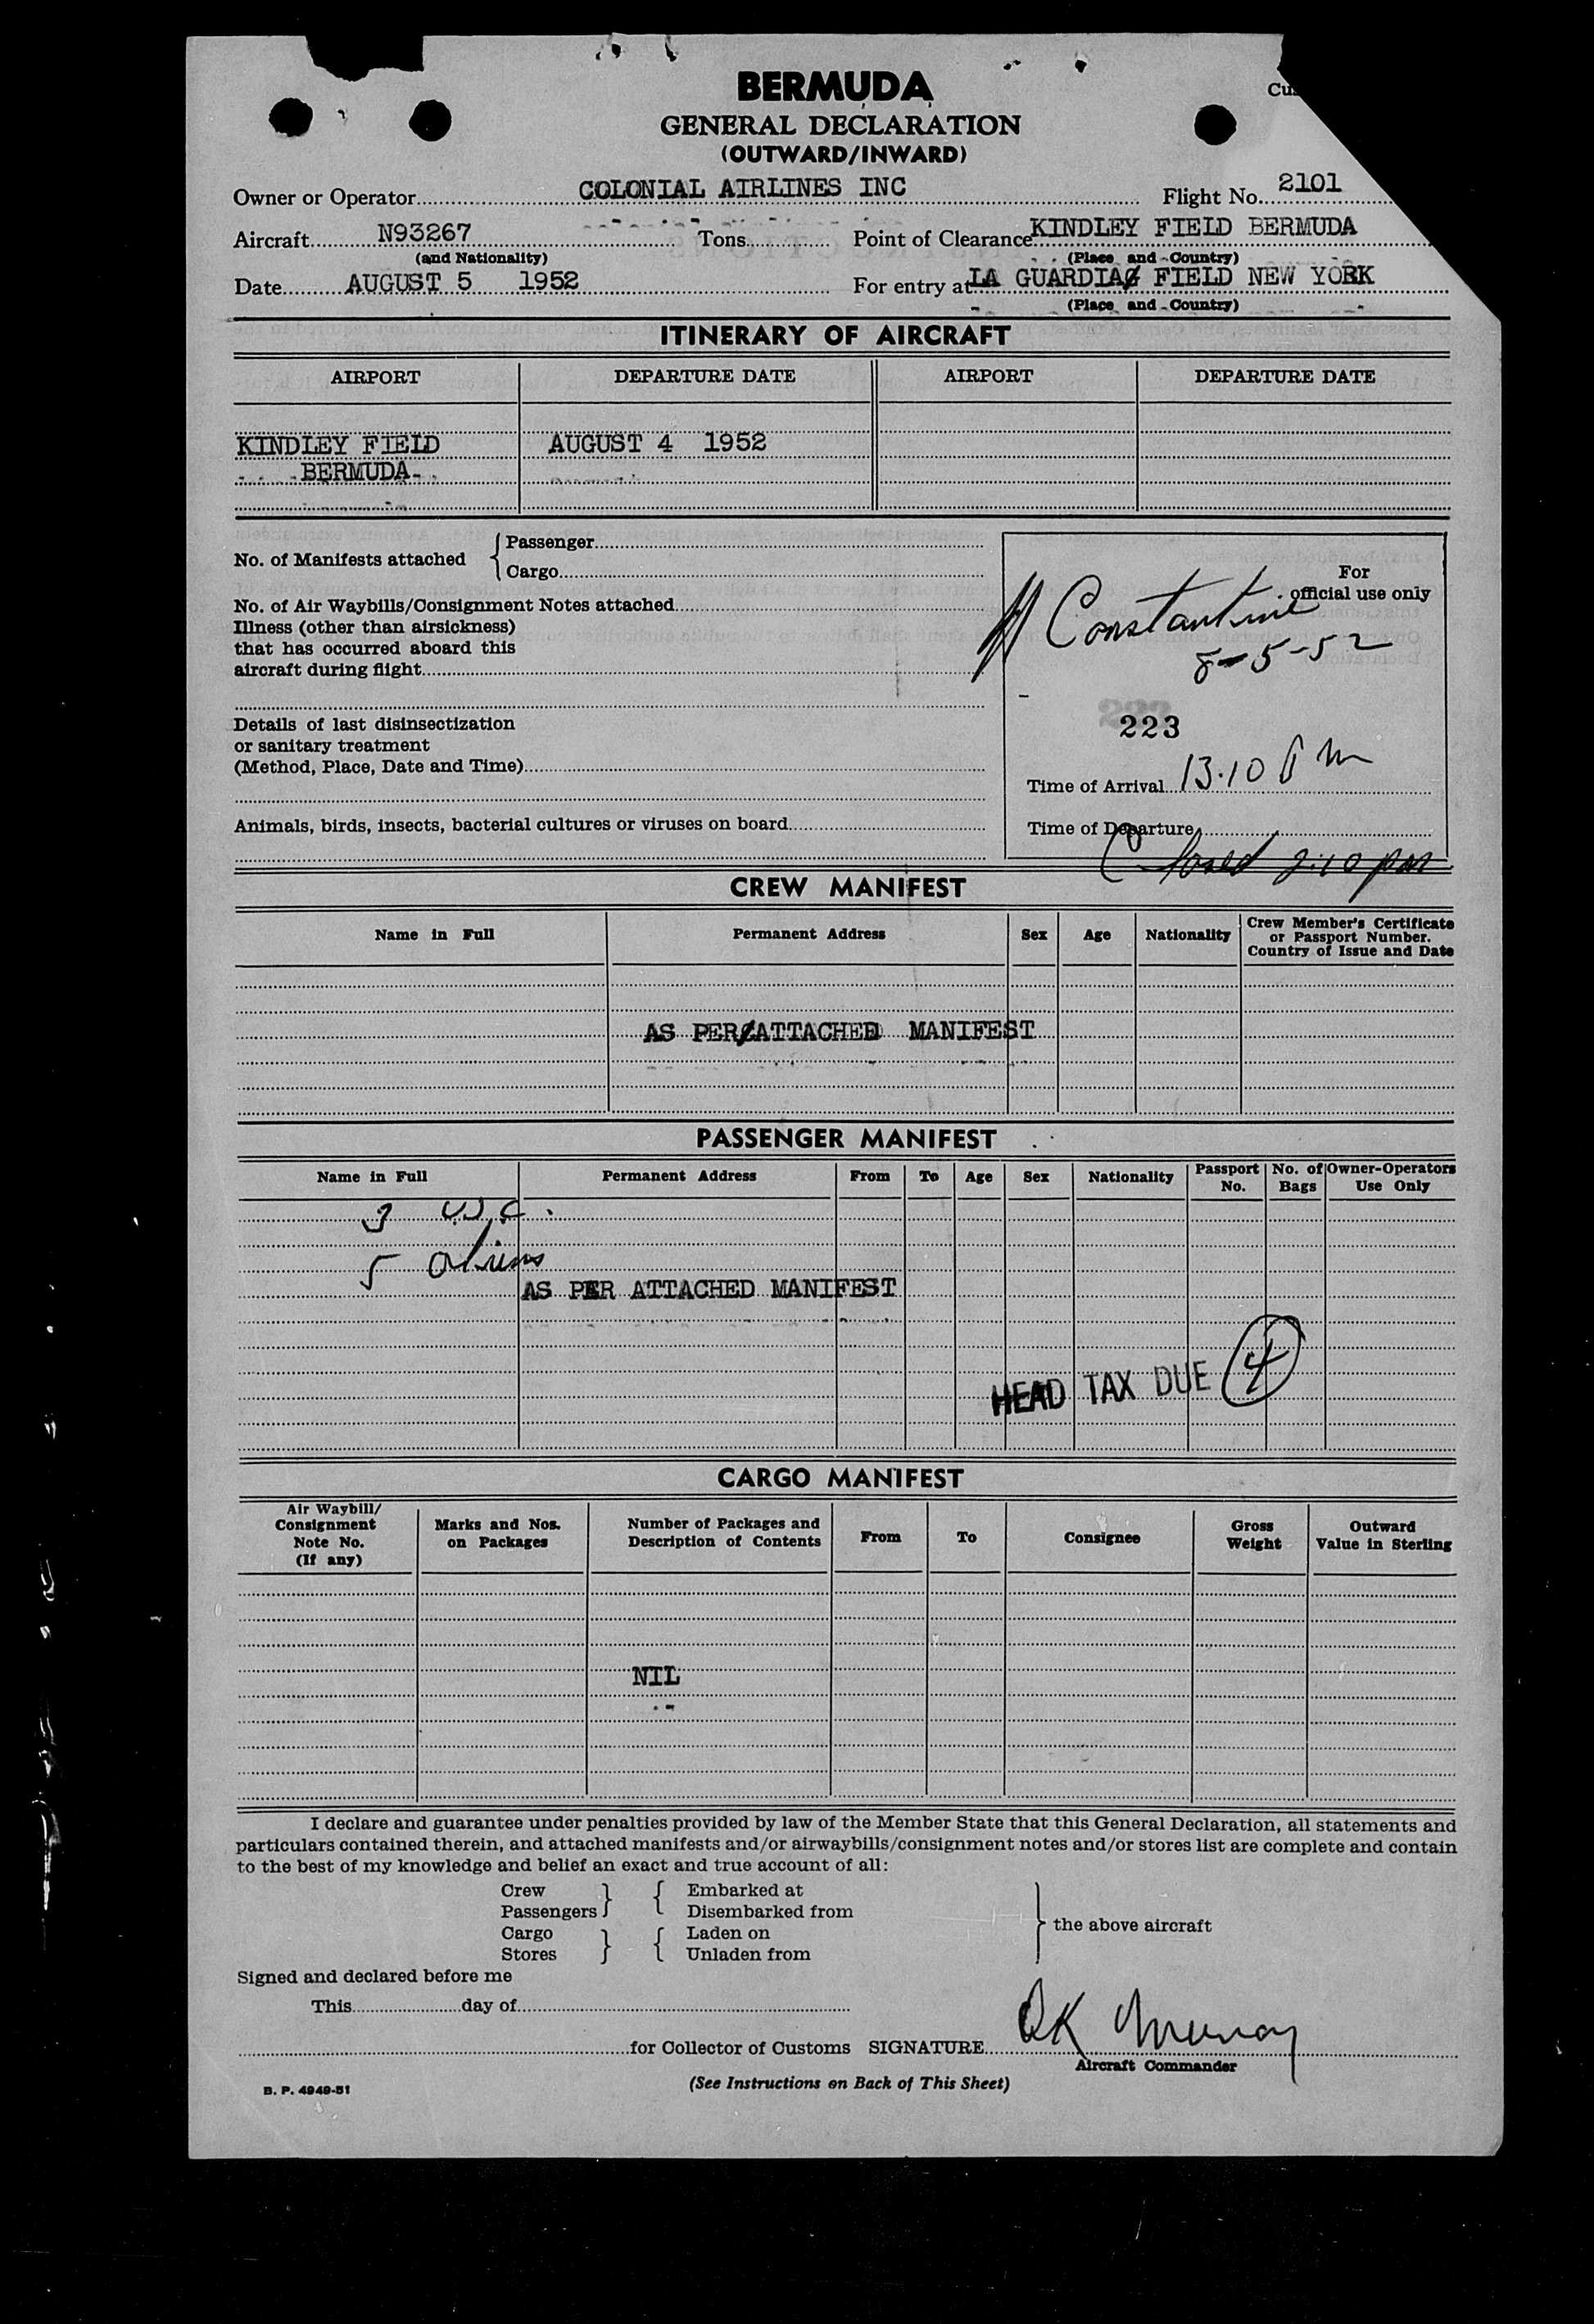 BERMUDA
Cus
GENERAL DECLARATION
(OUTWARD/INWARD)
Owner or Operator COLONIAL AIRLINES INC Flight No. 2101
Aircraft N93267 Tons Point of Clearance KINDLEY FIELD BERMUDA
(and Nationality) (Place and Country)
Date AUGUST 5 1952 For entry at LA GUARDIA FIELD NEW YORK
(Place and Country)
ITINERARY OF AIRCRAFT
AIRPORT DEPARTURE DATE AIRPORT DEPARTURE DATE
KINDLEY FIELD AUGUST 4 1952
BERMUDA
No. of Manifests attached { Passenger
Cargo
For
official use only
No. of Air Waybills/Consignment Notes attached
Constantine
8-5-52
Illness (other than airsickness)
that has occurred aboard this
aircraft during flight
Details of last disinsectization
or sanitary treatment
(Method, Place, Date and Time)
223
Time of Arrival 13.10 PM
Animals, birds, insects, bacterial cultures or viruses on board
Time of Departure
Closed 2:10 pm
CREW MANIFEST
Name in Full Permanent Address Sex Age Nationality Crew Member's Certificate
or Passport Number.
Country of Issue and Date
AS PER ATTACHED MANIFEST
PASSENGER MANIFEST
Name in Full Permanent Address From To Age Sex Nationality Passport No. No. of Bags Owner-Operators Use Only
3 U.S.C.
5 aliens
AS PER ATTACHED MANIFEST
HEAD TAX DUE 4
CARGO MANIFEST
Air Waybill/
Consignment
Note No.
(If any)
Marks and Nos.
on Packages
Number of Packages and
Description of Contents
From To Consignee
Gross
Weight
Outward
Value in Sterling
NIL
I declare and guarantee under penalties provided by law of the Member State that this General Declaration, all statements and
particulars contained therein, and attached manifests and/or airwaybills/consignment notes and/or stores list are complete and contain
to the best of my knowledge and belief an exact and true account of all:
Crew } { Embarked at
Passengers Disembarked from
Cargo } { Laden on
Stores Unladen from
} the above aircraft
Signed and declared before me
This day of
for Collector of Customs SIGNATURE K Murray
Aircraft Commander
(See Instructions on Back of This Sheet)
B. P. 4949-51